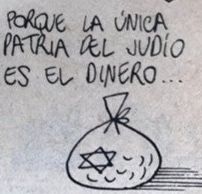 PORQUE LA ÚNICA
PATRIA DEL JUDÍO
ES EL DINERO...